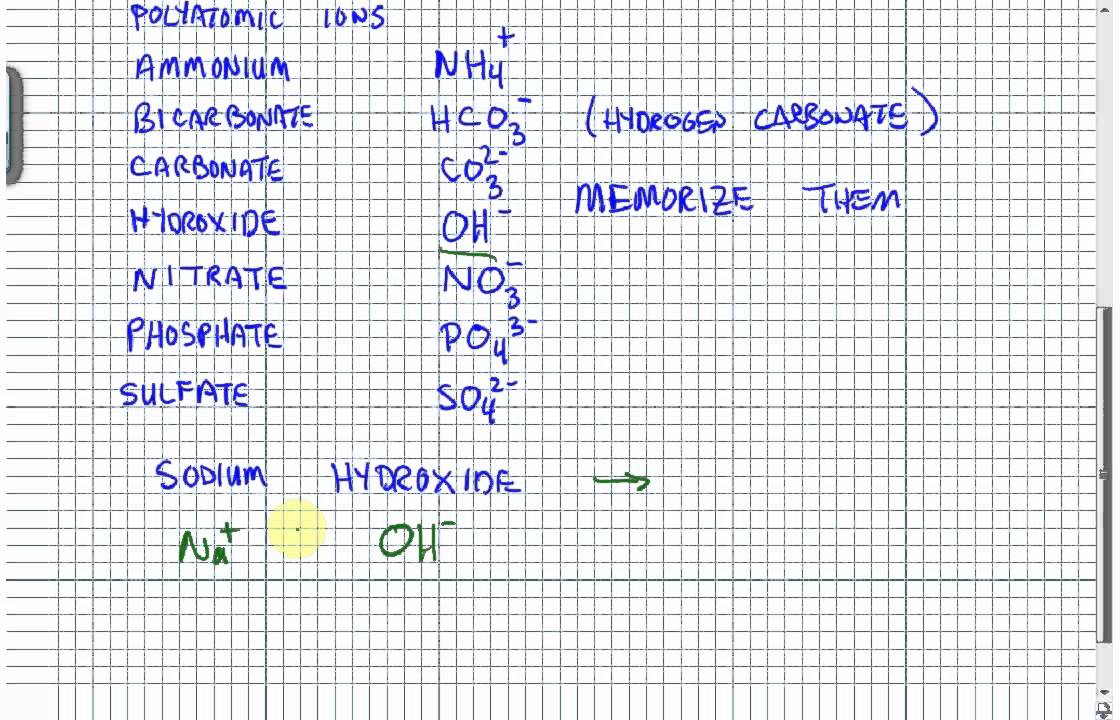 POLYATOMIC IONS
AMMONIUM NH₄⁺
BICARBONATE HCO₃⁻ (HYDROGEN CARBONATE)
CARBONATE CO₃²⁻
MEMORIZE THEM
HYDROXIDE OH⁻
NITRATE NO₃⁻
PHOSPHATE PO₄³⁻
SULFATE SO₄²⁻
SODIUM HYDROXIDE →
Na⁺ OH⁻